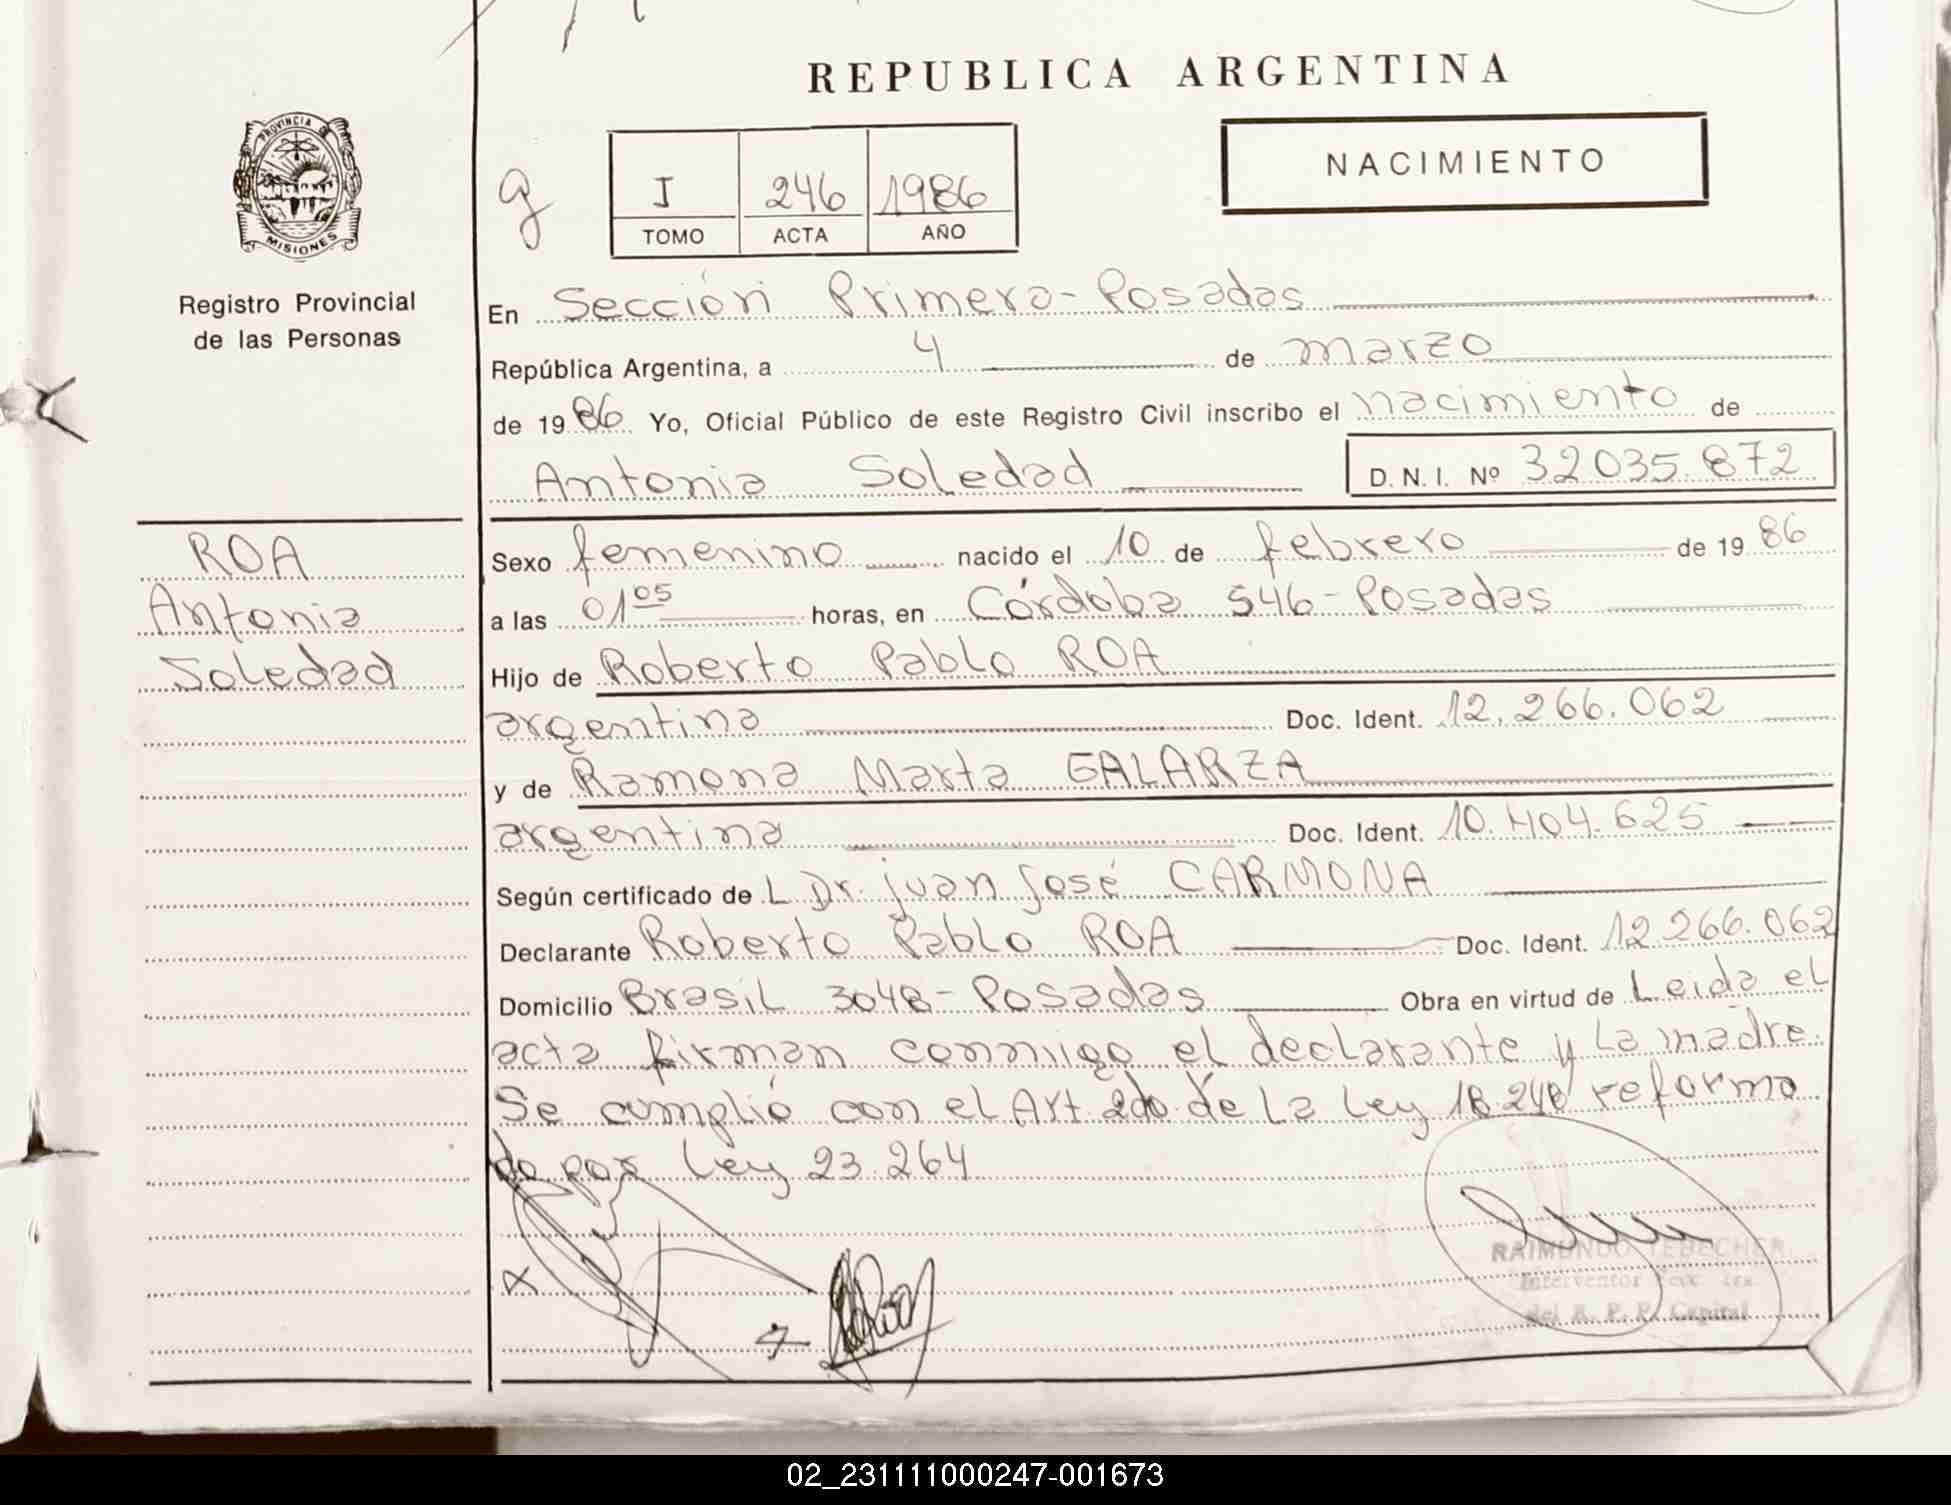 REPUBLICA ARGENTINA
PROVINCIA DE
MISIONES
Registro Provincial
de las Personas
g
I 246 1986
TOMO ACTA AÑO
NACIMIENTO
En Sección Primera - Posadas
República Argentina, a 4 de marzo
de 1986 Yo, Oficial Público de este Registro Civil inscribo el nacimiento de
Antonia Soledad D. N. I. Nº 32035.872
ROA
Antonia
Soledad
Sexo femenino nacido el 10 de febrero de 1986
a las 01 05 horas, en Córdoba 546 - Posadas
Hijo de Roberto Pablo ROA
argentino Doc. Ident. 12.266.062
y de Ramona Marta GALARZA
argentina Doc. Ident. 10.404.625
Según certificado de L Dr. Juan José CARMONA
Declarante Roberto Pablo ROA Doc. Ident. 12.266.062
Domicilio Brasil 3048 - Posadas Obra en virtud de Leida el
acta firman conmigo el declarante y la madre.
Se cumplió con el Art. 2do. de la Ley 18.248 reforma
do por Ley 23.264
RAIMUNDO TEBECHER
Interventor Secc. 1ra.
del R. P. P. Capital
02_231111000247-001673